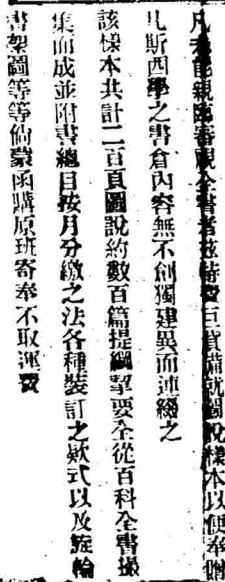 凡未能親臨審視全書者茲特費巨資備就圖說樣本以便奉贈
凡斯四學之書倉內容無不創獨建異而連綴之
該樣本共計二百頁圖說約數百篇提綱挈要全從百科全書撮
集而成並附書總目按月分繳之法各種裝訂之欵式以及旋輪
書架圖等等倘蒙函購原班寄奉不取運費